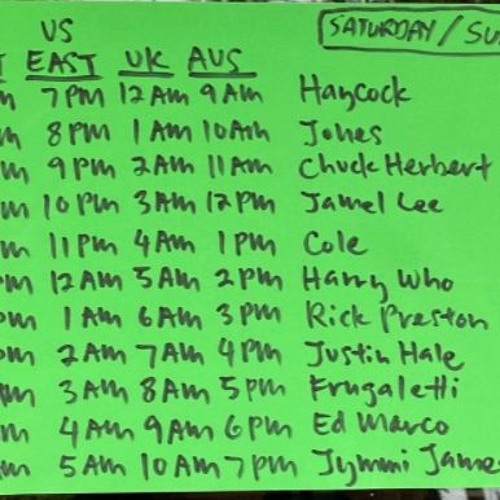 US SATURDAY / SU
EAST UK AUS
7PM 12AM 9AM Haycock
8PM 1AM 10AM Jones
9PM 2AM 11AM Chuck Herbert
10PM 3AM 12PM Jamel Lee
11PM 4AM 1PM Cole
12AM 5AM 2PM Harry Who
1AM 6AM 3PM Rick Preston
2AM 7AM 4PM Justin Hale
3AM 8AM 5PM Frugaletti
4AM 9AM 6PM Ed Marco
5AM 10AM 7PM Jymmi James